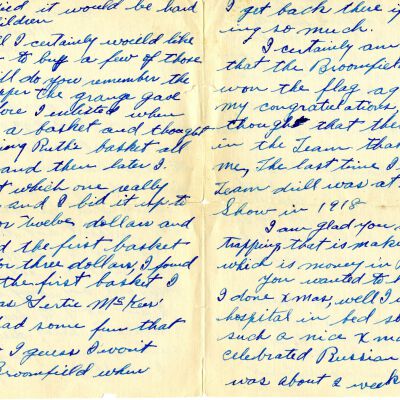 it would be hard
ildren
ll I certainly woeild like
to buy a few of those
ill do you remember the
pper the grange gad
ore I enlisted when
a basket and thought
ing Ruthe basket all
and then later I
t which one really
and I bid it up to
or twelve dollars and
d the first basket
for three dollars, I found
the first basket I
as Gertie McKees'
had some fun that
I guess I wont
Broomfield when
I get back there if
ing so much.
I certainly am
that the Broomfield
won the flag ag
my congratulations,
thought that the
in the Team tha
me, The last time I
Team drill was at
Show in 1918
I am glad you
trapping that is make
which is money in
You wanted to
I done xmas, well I w
hospital in bed so
such a nice xma
celebrated Russian
was about 2 week